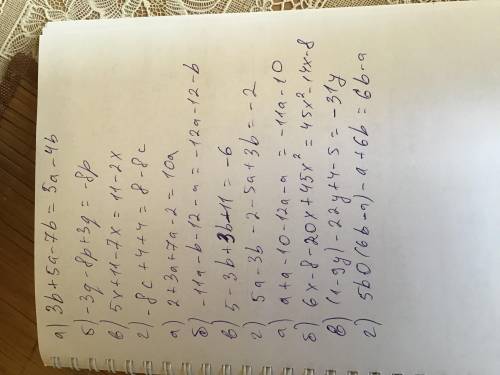 а) 3b+5a-7b= 5a-4b
б) -3q-8p+3q=-8p
в) 5x+11-7x=11-2x
г) -8c+4+4=8-8c
а) 2+3a+7a-2=10a
б) -11a-b-12-a=-12a-12-b
в) 5-3b+3b-11=-6
г) 5a-3b-2-5a+3b=-2
а) a+a-10-12a-a=-11a-10
б) 6x-8-20x+45x²=45x²-14x-8
в) (1-9y)-22y+4-5=-31y
г) 5b0(6b-a)-a+6b=6b-a